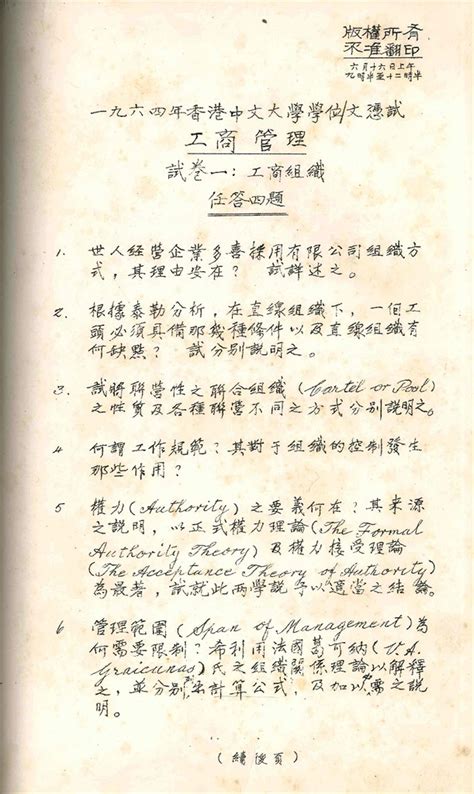 版權所有
不准翻印
六月十六日上午
九時半至十二時半
一九六四年香港中文大學學位/文憑試
工商管理
試卷一：工商組織
任答四題
1. 世人經營企業多喜採用有限公司組織方
式，其理由安在？ 試詳述之。
2. 根據泰勒分析，在直線組織下，一個工
頭必須具備那幾種條件以及直線組織有
何缺點？ 試分別說明之。
3. 試將聯營性之聯合組織 (Cartel or Pool)
之性質及各種聯營不同之方式分別說明之。
4 何謂工作規範？其對于組織的控制發生
那些作用？
5 權力 (Authority) 之要義何在？其來源
之說明，以正式權力理論 (The Formal
Authority Theory) 及權力接受理論
(The Acceptance Theory of Authority)
為最著，試就此兩學說予以適當之結論。
6 管理範圍 (Span of Management) 為
何需要限制？希利用法國葛可納 (V.A.
Graicunas) 氏之組織關係理論以解釋
之，並分別列出計算公式，及加以必需之說
明。
(續後頁)